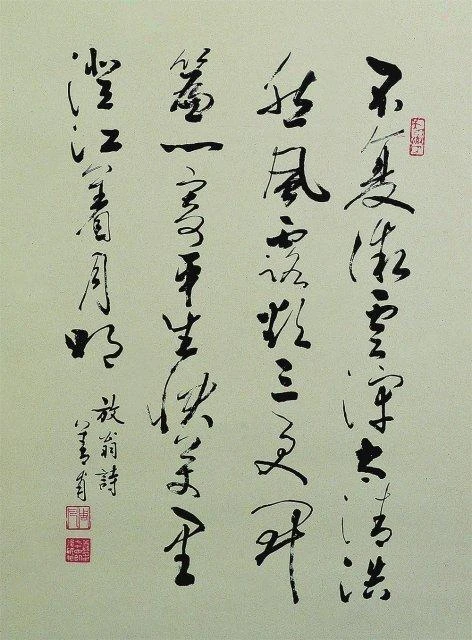 不復微雲滓太清浩
然風露欲三更開
簾一寄平生快萬里
澄江着月明
放翁詩